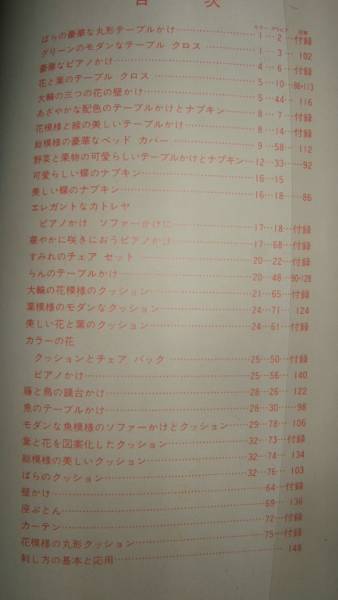 目次
カラー グラビア 図解
ばらの豪華な丸形テーブルかけ 1 2 付録
グリーンのモダンなテーブル クロス 1 3 102
豪華なピアノかけ 4 6 付録
花と葉のテーブル クロス 5 10 96•113
大輪の三つの花の壁かけ 5 44 116
あざやかな配色のテーブルかけとナプキン 8 7 付録
花模様と線の美しいテーブルかけ 8 14 付録
総模様の豪華なベッド カバー 9 58 112
野菜と果物の可愛らしいテーブルかけとナプキン 12 33 92
可愛らしい蝶のナプキン 16 15
美しい蝶のナプキン 16 18 86
エレガントなカトレヤ
ピアノかけ ソファーかけに 17 18 付録
華やかに咲きにおうピアノかけ 17 68 付録
すみれのチェア セット 20 22 付録
らんのテーブルかけ 20 48 90•128
大輪の花模様のクッション 21 65 付録
葉模様のモダンなクッション 24 71 124
美しい花と葉のクッション 24 61 付録
カラーの花
クッションとチェア バック 25 50 付録
ピアノかけ 25 56 140
藤と鳥の鏡台かけ 28 26 122
魚のテーブルかけ 28 30 98
モダンな魚模様のソファーかけとクッション 29 78 106
葉と花を図案化したクッション 32 73 付録
総模様の美しいクッション 32 74 134
ばらのクッション 32 76 103
壁かけ 64 付録
座ぶとん 69 136
カーテン 72 付録
花模様の丸形クッション 75 付録
刺し方の基本と応用 148